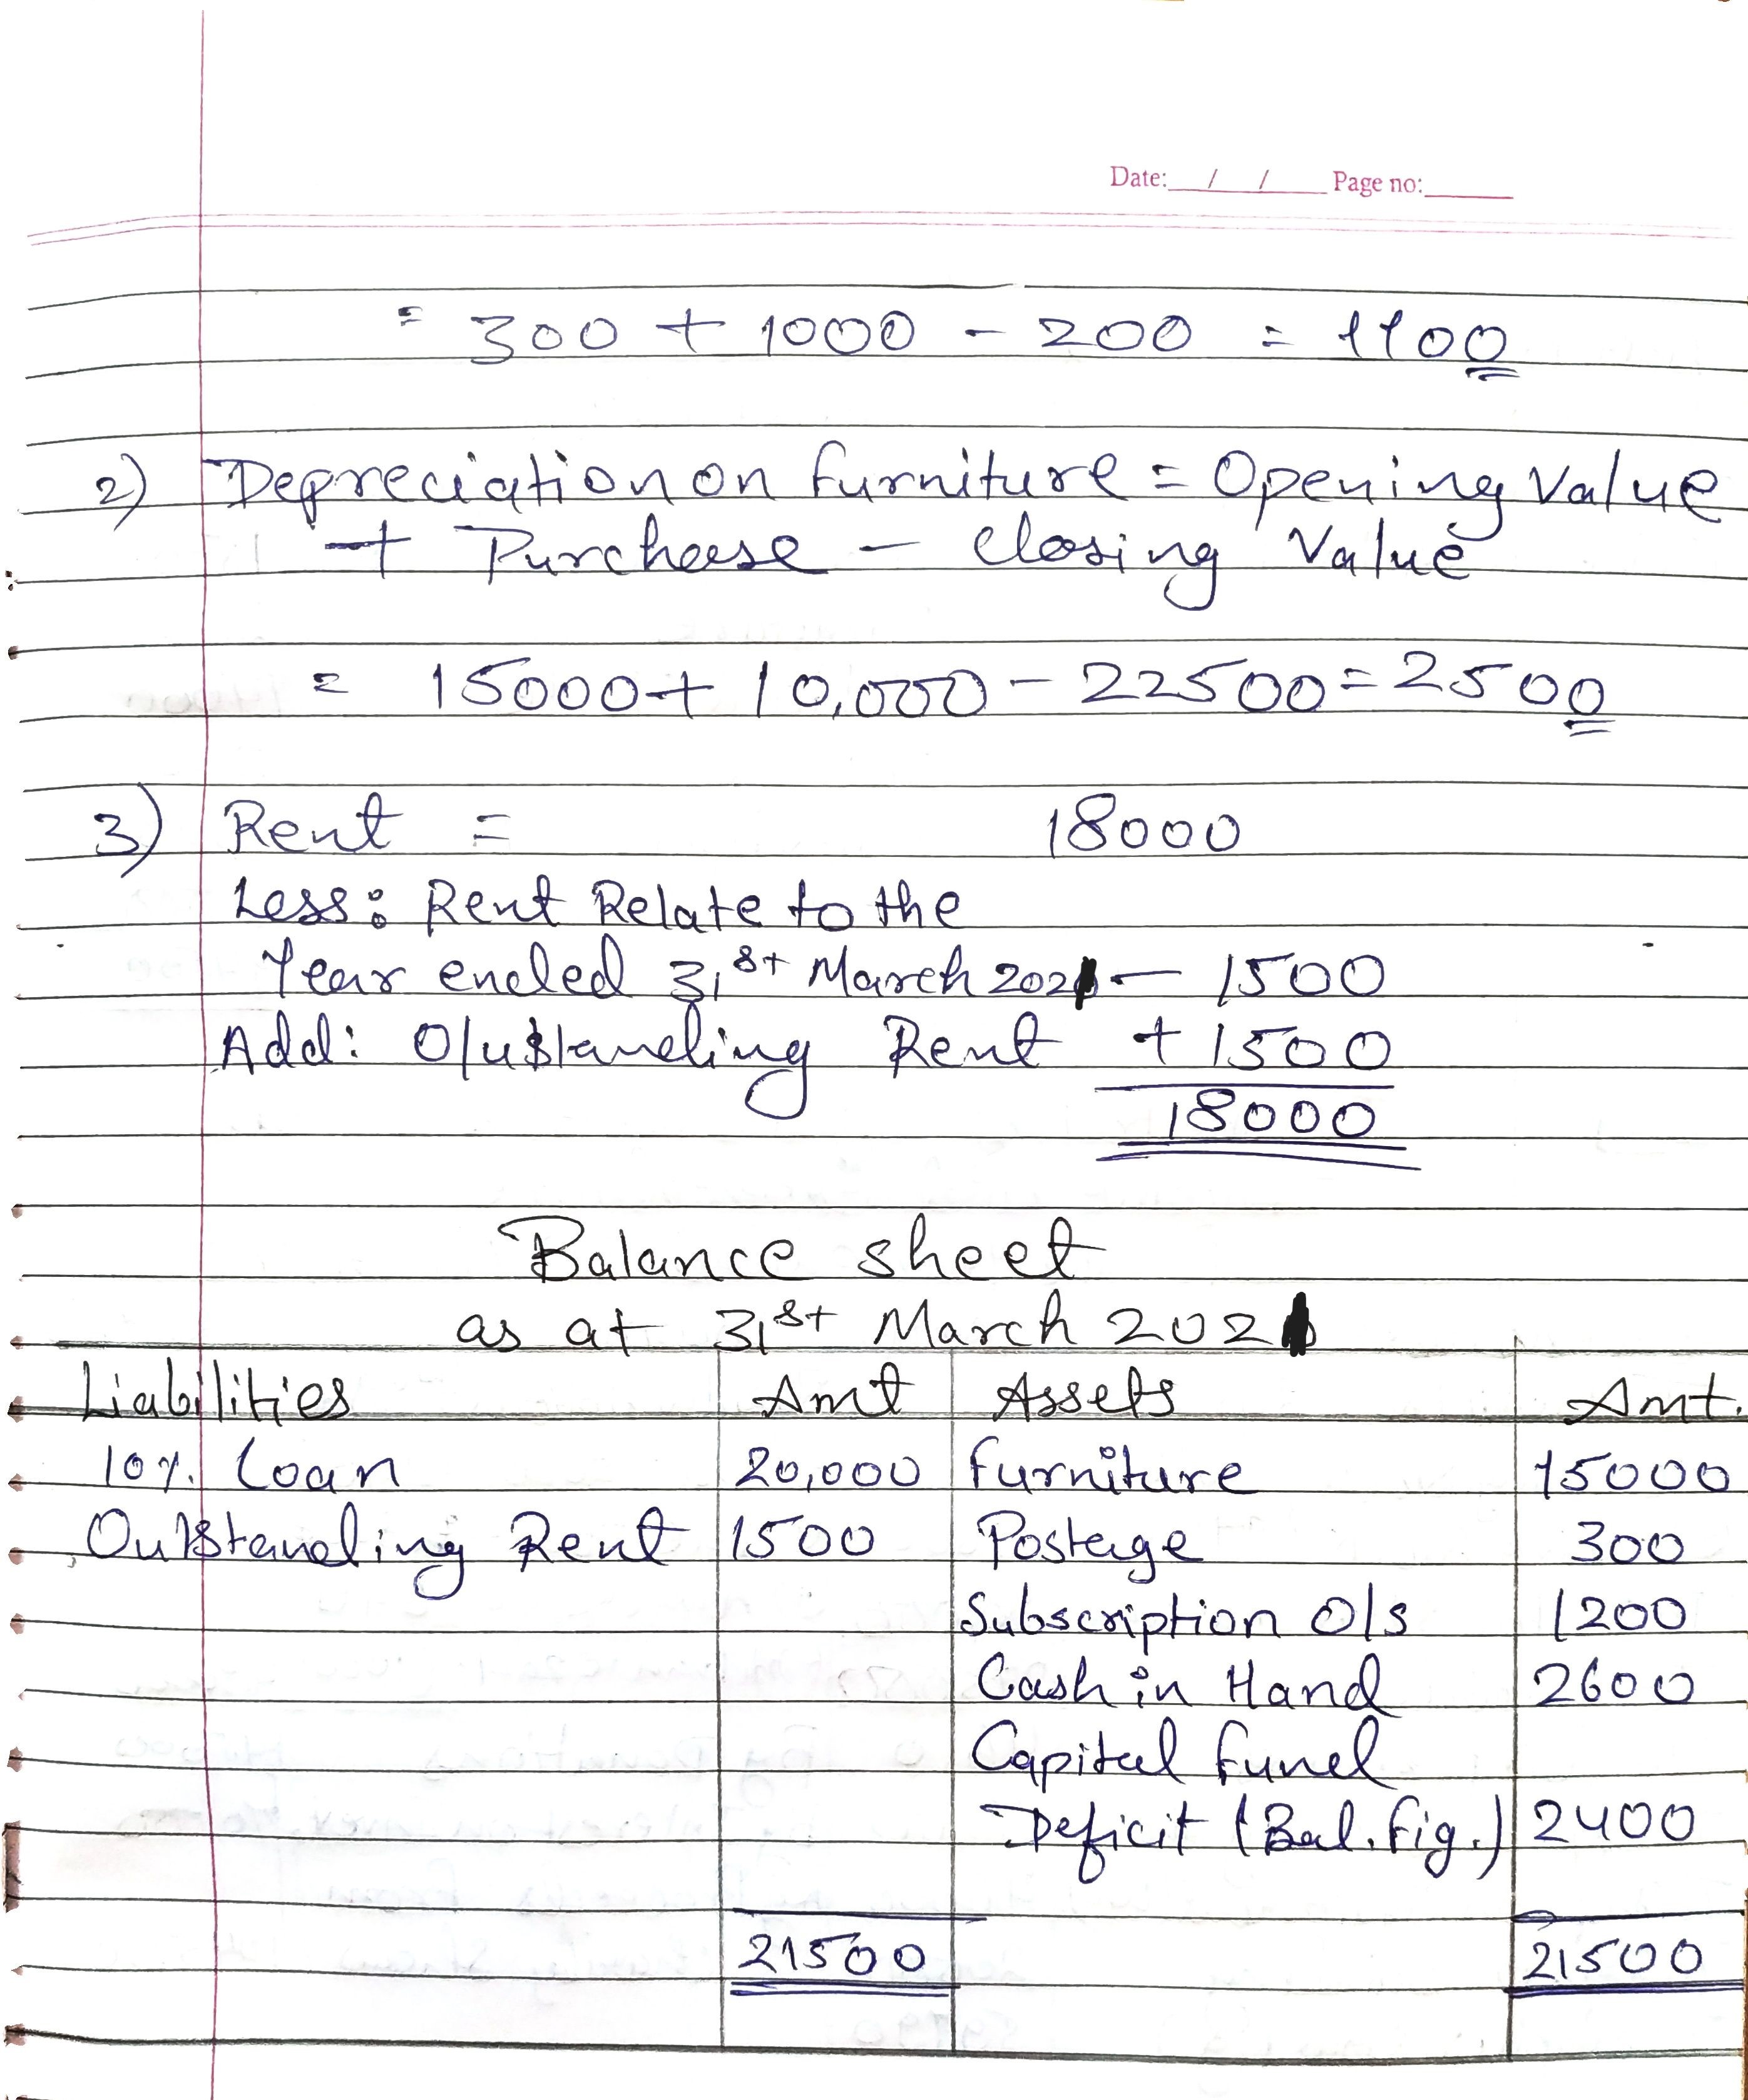 Date: / / Page no:
= 300 + 1000 - 200 = 1100
2) Depreciation on furniture = Opening Value
+ Purchase - Closing Value
= 15000 + 10,000 - 22500 = 2500
3) Rent = 18000
Less: Rent Relate to the
Year ended 31st March 2021 - 1500
Add: Outstanding Rent + 1500
18000
Balance sheet
as at 31st March 2021
Liabilities Amt Assets Amt.
10% Loan 20,000 furniture 15000
Outstanding Rent 1500 Postage 300
Subscription O/s 1200
Cash in Hand 2600
Capital fund
Deficit (Bal. fig.) 2400
21500 21500